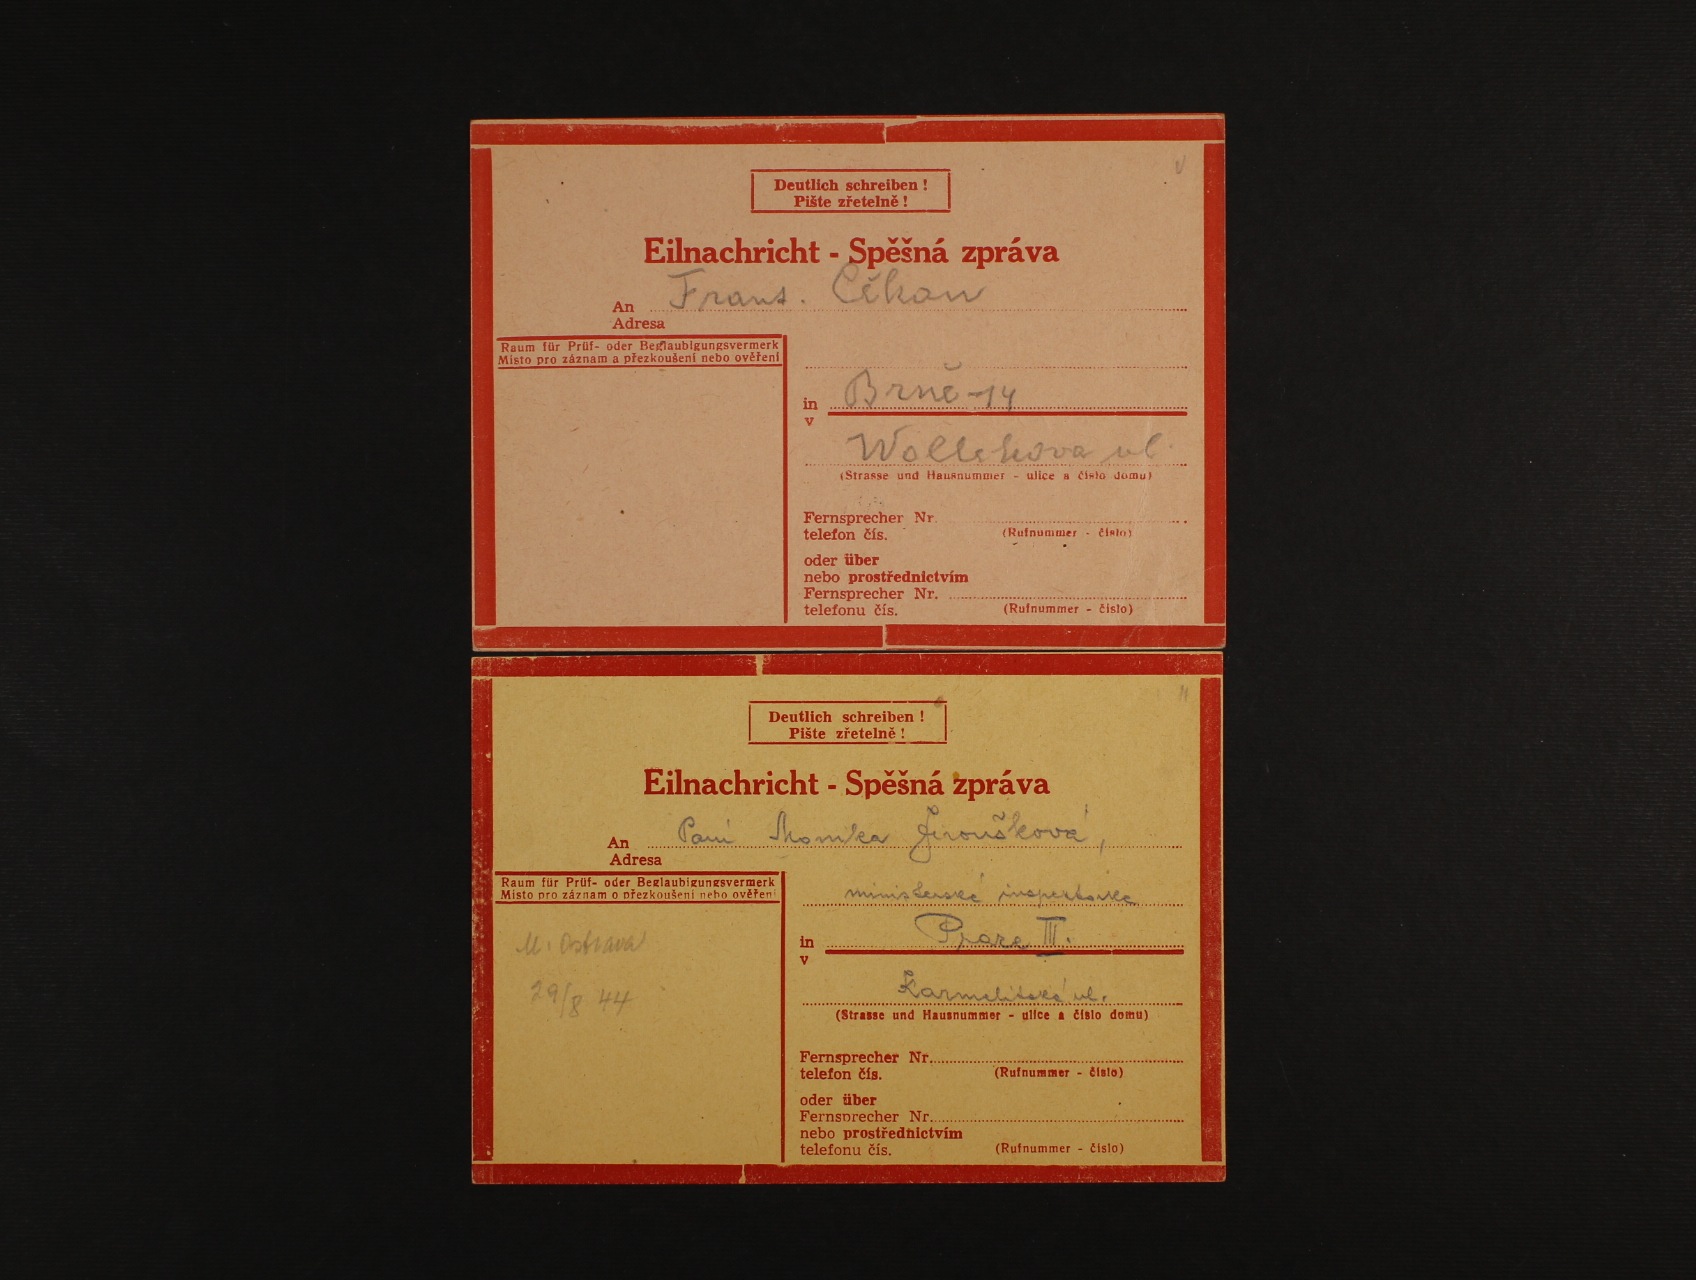 Deutlich schreiben !
Pište zřetelně !
Eilnachricht - Spěšná zpráva
An Frant. Cěkan
Adresa
Raum für Prüf- oder Beglaubigungsvermerk
Misto pro záznam a přezkoušení nebo ověření
in Brně-14
v
ul.
(Strasse und Hausnummer - ulice a číslo domu)
Fernsprecher Nr.
telefon čís. (Rufnummer - číslo)
oder über
nebo prostřednictvím
Fernsprecher Nr.
telefonu čís. (Rufnummer - číslo)
Deutlich schreiben !
Pište zřetelně !
Eilnachricht - Spěšná zpráva
An Paní Monika Jiroušková,
Adresa
Raum für Prüf- oder Beglaubigungsvermerk
Misto pro záznam o přezkoušení nebo ověření
ministerská inspektorka
M. Ostrava
in Praze III.
v
29/8 44
Karmelitská ul.
(Strasse und Hausnummer - ulice a číslo domu)
Fernsprecher Nr.
telefon čís. (Rufnummer - číslo)
oder über
Fernsprecher Nr.
nebo prostřednictvím
telefonu čís. (Rufnummer - číslo)